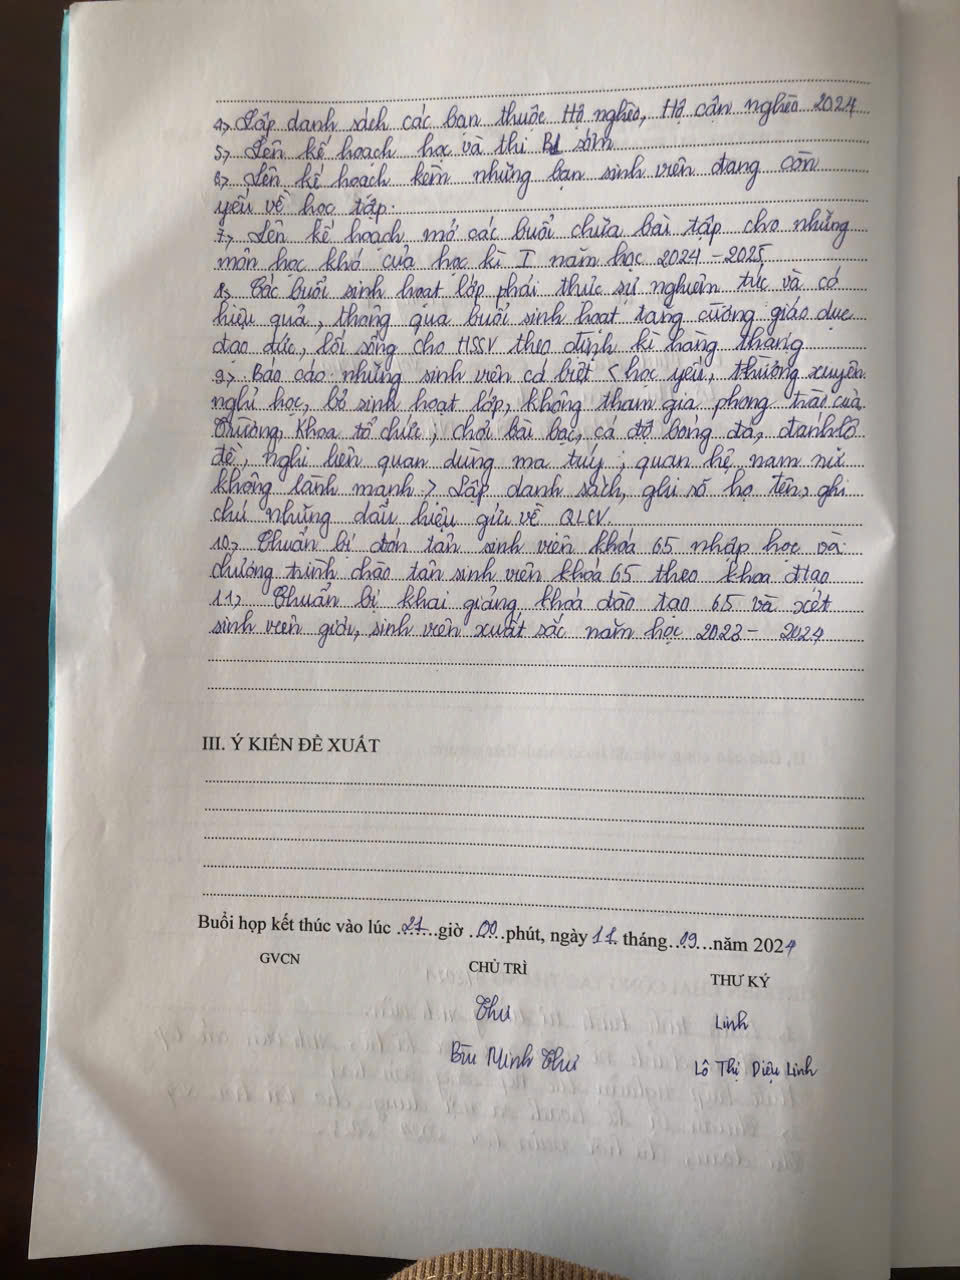 4, Lập danh sách các bạn thuộc Hộ nghèo, Hộ cận nghèo 2024
5, Lên kế hoạch học và thi B1 sớm
6, Lên kế hoạch kèm những bạn sinh viên đang còn
yếu về học tập.
7, Lên kế hoạch mở các buổi chữa bài tập cho những
môn học khó của học kì I năm học 2024 - 2025
8, Các buổi sinh hoạt lớp phải thực sự nghiêm túc và có
hiệu quả, thông qua buổi sinh hoạt tăng cường giáo dục
đạo đức, lối sống cho HSSV theo định kì hàng tháng
9, Báo cáo những sinh viên cá biệt < học yếu, thường xuyên
nghỉ học, bỏ sinh hoạt lớp, không tham gia phong trào của
Trường, Khoa tổ chức; chơi bài bạc, cá độ bóng đá, đánh lô
đề, nghi liên quan dùng ma túy; quan hệ nam nữ
không lành mạnh > Lập danh sách, ghi số họ tên, ghi
chú những dấu hiệu gửi về QLSV.
10, Chuẩn bị đón tân sinh viên khóa 65 nhập học và
chương trình chào tân sinh viên khoá 65 theo khoa đtạo
11, Chuẩn bị khai giảng khoá đào tạo 65 và xét
sinh viên giỏi, sinh viên xuất sắc năm học 2023 - 2024
III. Ý KIẾN ĐỀ XUẤT
Buổi họp kết thúc vào lúc 21 giờ 00 phút, ngày 11 tháng 09 năm 2024
GVCN CHỦ TRÌ THƯ KÝ
Thư Linh
Bùi Minh Thư Lô Thị Diệu Linh